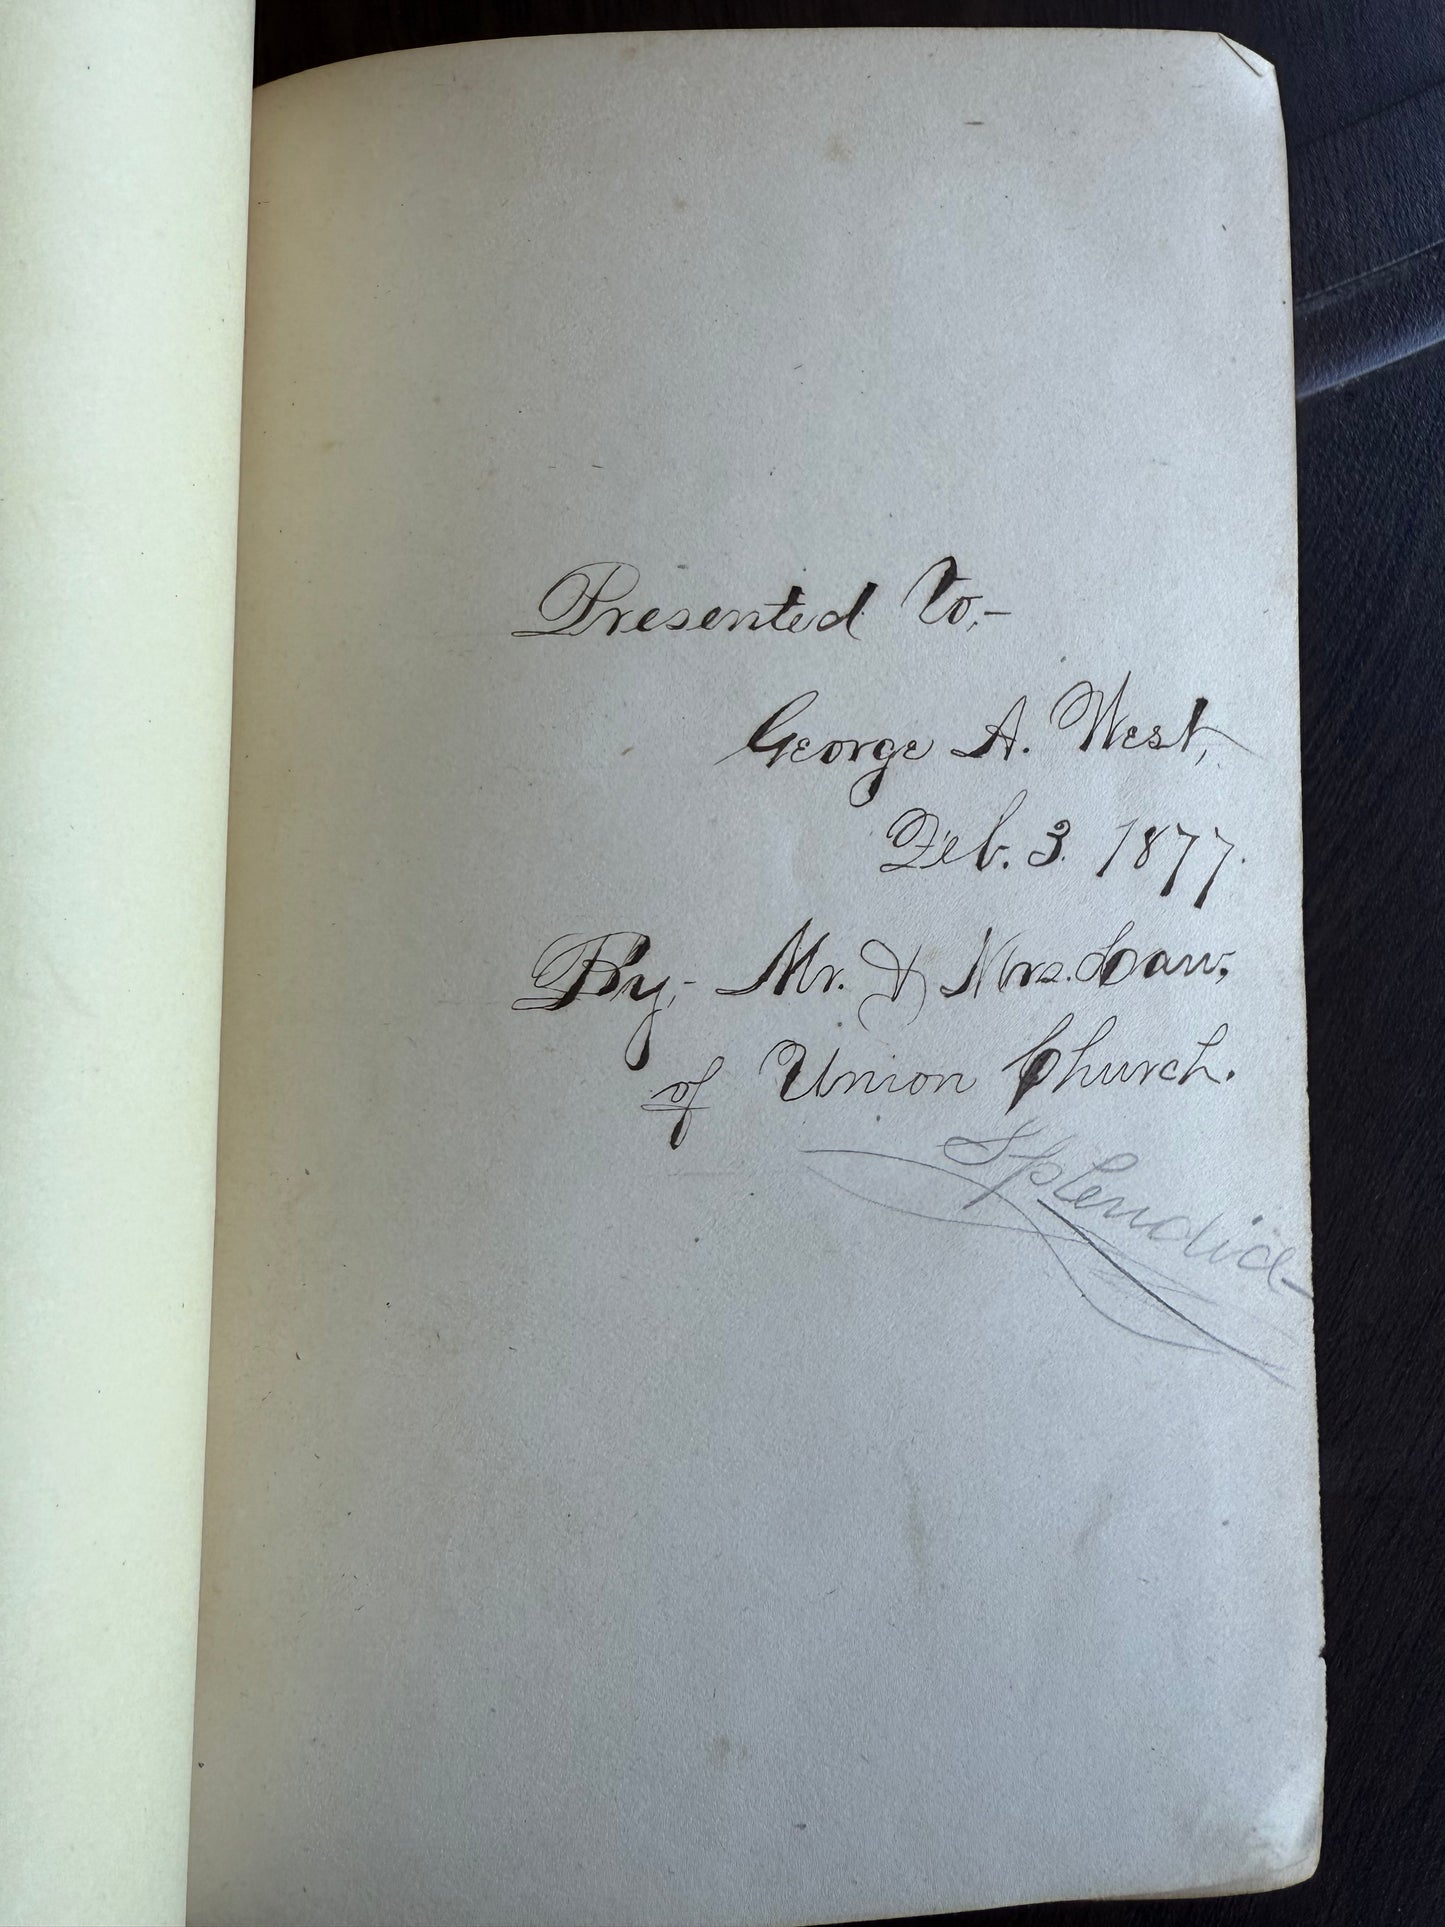 Presented To,-
George A. West,
Feb. 3. 1877.
By,- Mr. & Mrs. Law,
of Union Church.
Splendid